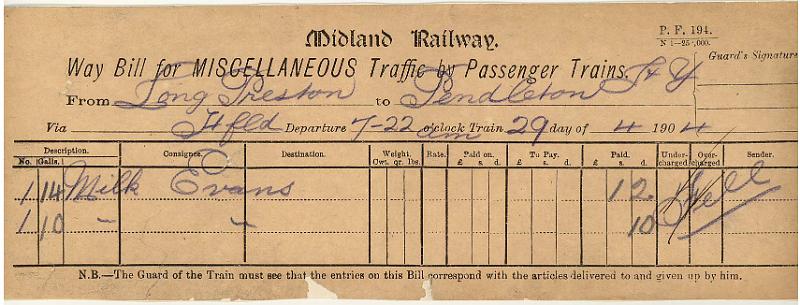 P. F. 194.
Midland Railway.
N 1—25,000.
Way Bill for MISCELLANEOUS Traffic by Passenger Trains.
Guard's Signature
From Long Preston to Pendleton L & Y
Via Hfld Departure 7-22 am o'clock Train 29 day of 4 1904
Description. Consignee. Destination. Weight. Rate. Paid on. To Pay. Paid. Under-charged Over-charged Sender.
No. Galls. Cwt. qr. lbs. £ s. d. £ s. d. £ s. d.
1 14 Milk Evans 1 2
1 10 " " 10
N.B.—The Guard of the Train must see that the entries on this Bill correspond with the articles delivered to and given up by him.